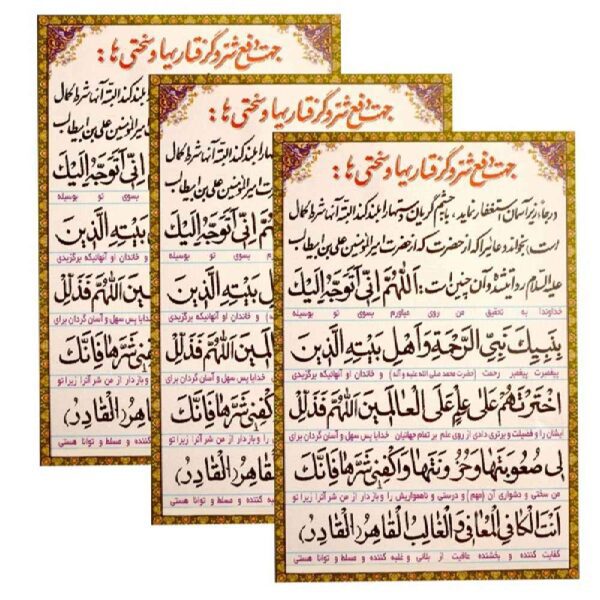 جهت دفع شر و گرفتاریها و سختی ها :
در جا، زیر آسمان استغفار نماید، با چشم گریان و دستها را بلند کند البته آنها شرط کمال
است، بخواند دعایرا که از حضرت که از حضرت میرالمؤمنین علی بن ابیطالب
علیه السلام روایت شده و آن چنین است: اَللّٰهُمَّ اِنّی اَتَوَجَّهُ اِلَیْکَ
خداوندا به تحقیق من روی میاورم بسوی تو بوسیله
بِنَبِیِّکَ نَبِیِّ الرَّحْمَةِ وَ اَهْلِ بَیْتِهِ الَّذینَ
پیغمبرت پیغمبر رحمت (حضرت محمد صلی الله علیه و آله) و خاندان او آنهائیکه برگزیدی
اخْتَرْتَهُمْ عَلیٰ عِلْمٍ عَلَی الْعالَمینَ اَللّٰهُمَّ فَذَلِّلْ
ایشان را و فضیلت و برتری دادی از روی علم بر تمام جهانیان خدایا پس سهل و آسان گردان برای
لی صُعُوبَتَها وَ حُزُونَتَها وَ اکْفِنی شَرَّها فَاِنَّکَ
من سختی و دشواری آن (مهم) و درستی و ناهمواریش را و باز دار از من شر آنرا زیرا تو
اَنْتَ الْکافِی الْمُعافی وَ الْغالِبُ الْقاهِرُ (الْقادِرُ)
کفایت کننده و بخشنده عافیت از بلائی و غلبه کننده و مسلط و توانا هستی